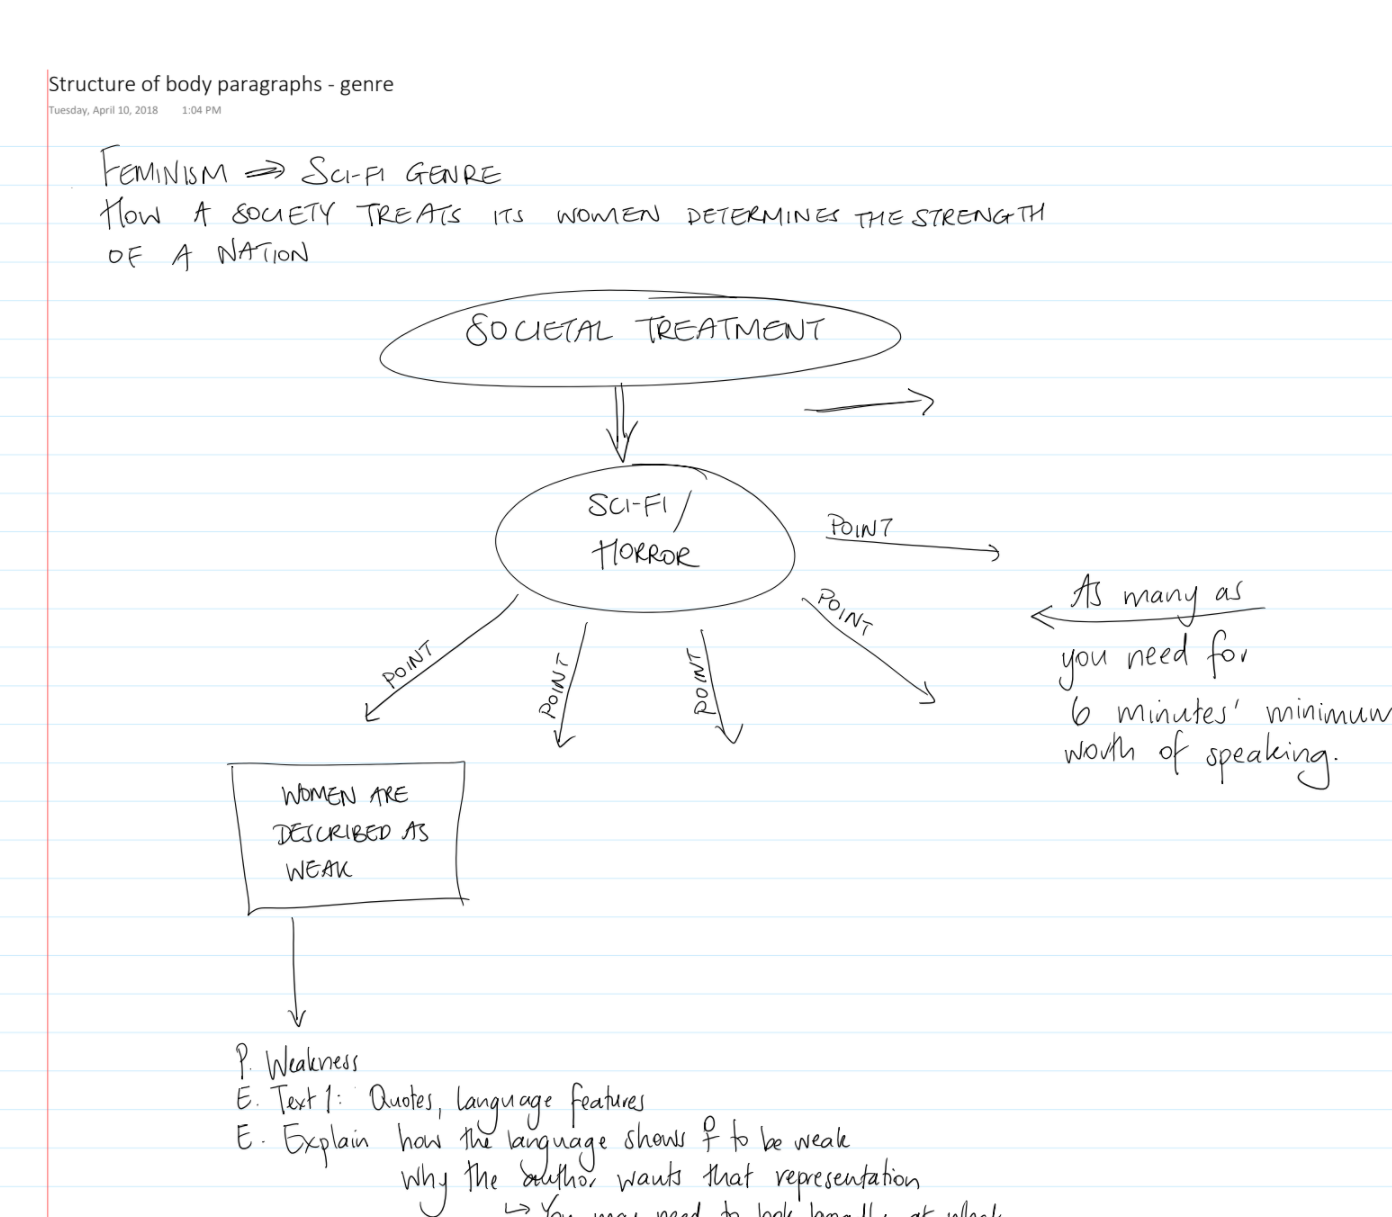 Structure of body paragraphs - genre
Tuesday, April 10, 2018 1:04 PM
FEMINISM ⇒ SCI-FI GENRE
HOW A SOCIETY TREATS ITS WOMEN DETERMINES THE STRENGTH
OF A NATION
SOCIETAL TREATMENT
SCI-FI /
HORROR
POINT
POINT
POINT
POINT
POINT
As many as
you need for
6 minutes' minimum
worth of speaking.
WOMEN ARE
DESCRIBED AS
WEAK
P. Weakness
E. Text 1: Quotes, language features
E. Explain how the language shows ♀ to be weak
Why the author wants that representation
↳ You may need to look at